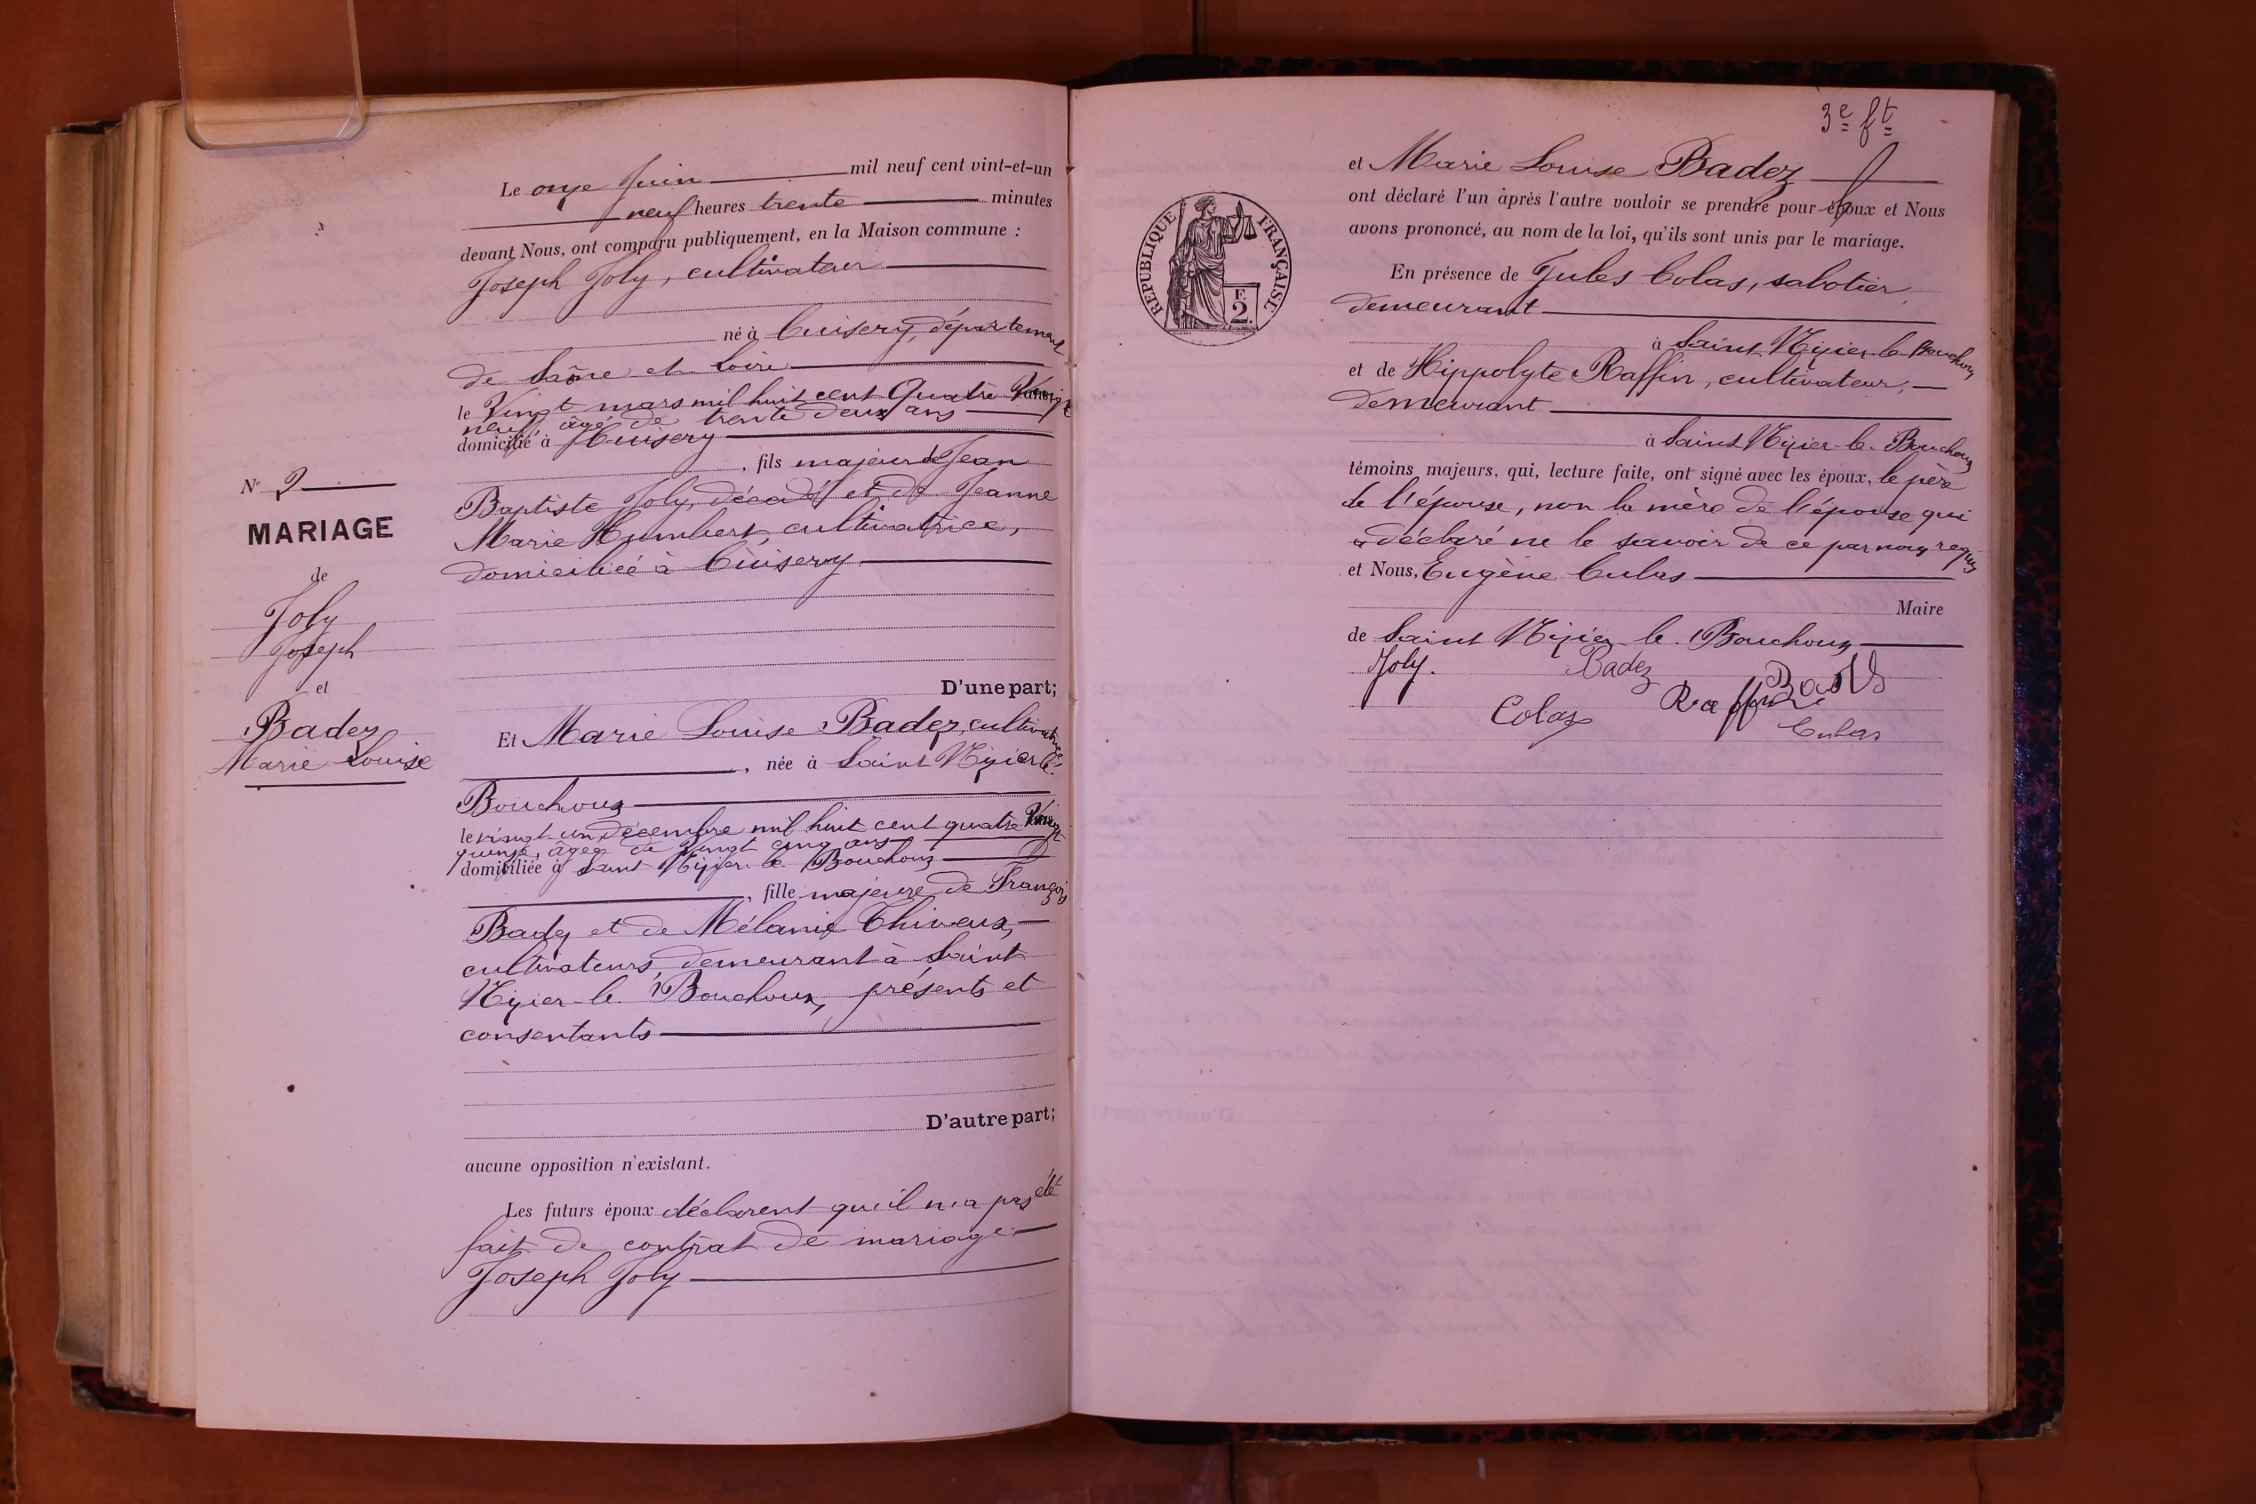 N° 2
MARIAGE
de
Joly
Joseph
et
Badez
Marie Louise
Le onze Juin mil neuf cent vint-et-un
neuf heures trente minutes
devant Nous, ont comparu publiquement, en la Maison commune :
Joseph Joly, cultivateur
né à Cuisery, département
de Saône et Loire
le Vingt mars mil huit cent Quatre Vingt
neuf, âgé de trente deux ans
domicilié à Cuisery
, fils majeur de Jean
Baptiste Joly, décédé et de Jeanne
Marie Humbert, cultivatrice,
domiciliée à Cuisery
D'une part;
Et Marie Louise Badez, cultivatrice
, née à Saint Nizier le
Bouchoux
le vingt un décembre mil huit cent quatre Vingt
quinze, âgée de vingt cinq ans
domiciliée à Saint Nizier-le Bouchoux
, fille majeure de François
Badez et de Mélanie Thiveux,
cultivateurs, demeurant à Saint
Nizier-le-Bouchoux, présents et
consentants
D'autre part;
aucune opposition n'existant.
Les futurs époux déclarent qu'il n'a pas été
fait de contrat de mariage
Joseph Joly
3e ft
REPUBLIQUE FRANÇAISE
F
2.
et Marie Louise Badez
ont déclaré l'un àprès l'autre vouloir se prendre pour époux et Nous
avons prononcé, au nom de la loi, qu'ils sont unis par le mariage.
En présence de Jules Colas, sabotier,
demeurant
à Saint Nizier-le Bouchoux
et de Hippolyte Raffin, cultivateur,
demeurant
à Saint Nizier-le-Bouchoux
témoins majeurs, qui, lecture faite, ont signé avec les époux, le père
de l'épouse, non la mère de l'épouse qui
a déclaré ne le savoir de ce par nous requis
et Nous, Eugène Culas
Maire
de Saint Nizier-le-Bouchoux
Joly. Badez
Colas Raffin
Culas